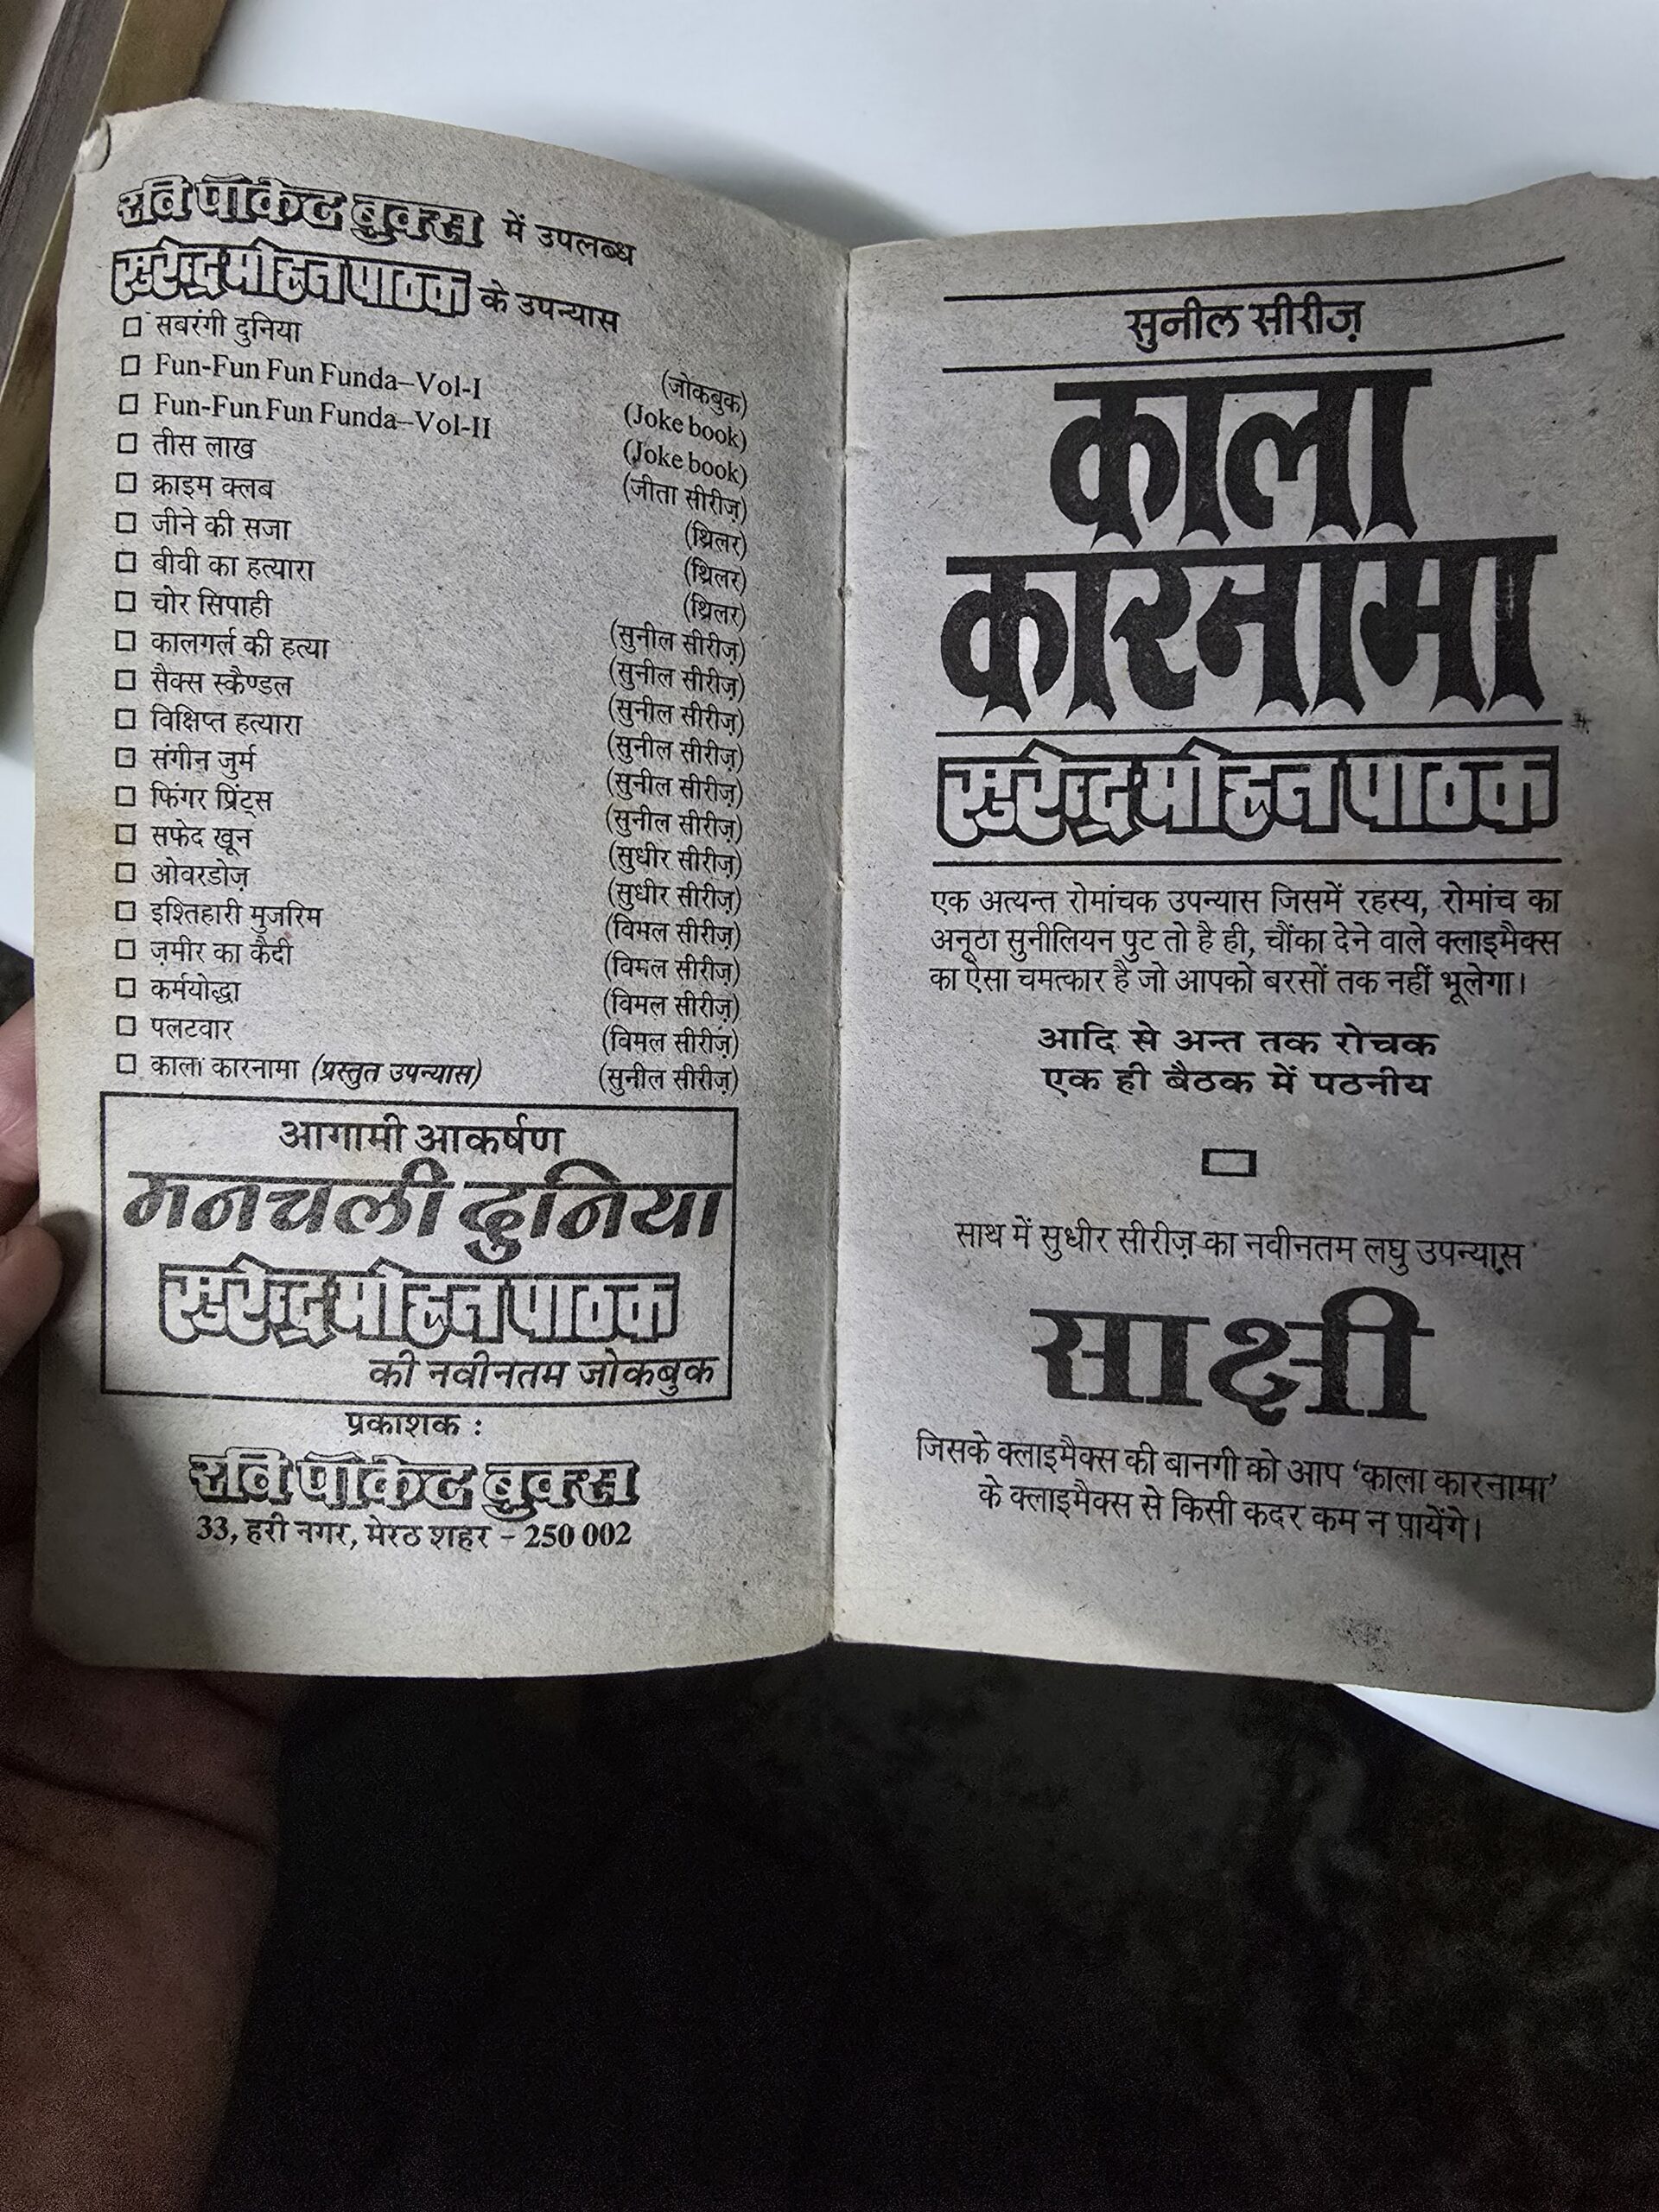 रवि पॉकेट बुक्स में उपलब्ध
सुरेन्द्र मोहन पाठक के उपन्यास
□ सबरंगी दुनिया (जोकबुक)
□ Fun-Fun Fun Funda–Vol-I (Joke book)
□ Fun-Fun Fun Funda–Vol-II (Joke book)
□ तीस लाख (जीता सीरीज़)
□ क्राइम क्लब (थ्रिलर)
□ जीने की सजा (थ्रिलर)
□ बीवी का हत्यारा (थ्रिलर)
□ चोर सिपाही (सुनील सीरीज़)
□ कालगर्ल की हत्या (सुनील सीरीज़)
□ सैक्स स्कैण्डल (सुनील सीरीज़)
□ विक्षिप्त हत्यारा (सुनील सीरीज़)
□ संगीन जुर्म (सुनील सीरीज़)
□ फिंगर प्रिंट्स (सुनील सीरीज़)
□ सफेद खून (सुधीर सीरीज़)
□ ओवरडोज़ (सुधीर सीरीज़)
□ इश्तिहारी मुजरिम (विमल सीरीज़)
□ ज़मीर का कैदी (विमल सीरीज़)
□ कर्मयोद्धा (विमल सीरीज़)
□ पलटवार (विमल सीरीज़)
□ काला कारनामा (प्रस्तुत उपन्यास) (सुनील सीरीज़)
आगामी आकर्षण
मनचली दुनिया
सुरेन्द्र मोहन पाठक
की नवीनतम जोकबुक
प्रकाशक :
रवि पॉकेट बुक्स
33, हरी नगर, मेरठ शहर – 250 002
सुनील सीरीज़
काला
कारनामा
सुरेन्द्र मोहन पाठक
एक अत्यन्त रोमांचक उपन्यास जिसमें रहस्य, रोमांच का
अनूठा सुनीलियन पुट तो है ही, चौंका देने वाले क्लाइमैक्स
का ऐसा चमत्कार है जो आपको बरसों तक नहीं भूलेगा।
आदि से अन्त तक रोचक
एक ही बैठक में पठनीय
साथ में सुधीर सीरीज़ का नवीनतम लघु उपन्यास
साक्षी
जिसके क्लाइमैक्स की बानगी को आप ‘काला कारनामा’
के क्लाइमैक्स से किसी कदर कम न पायेंगे।